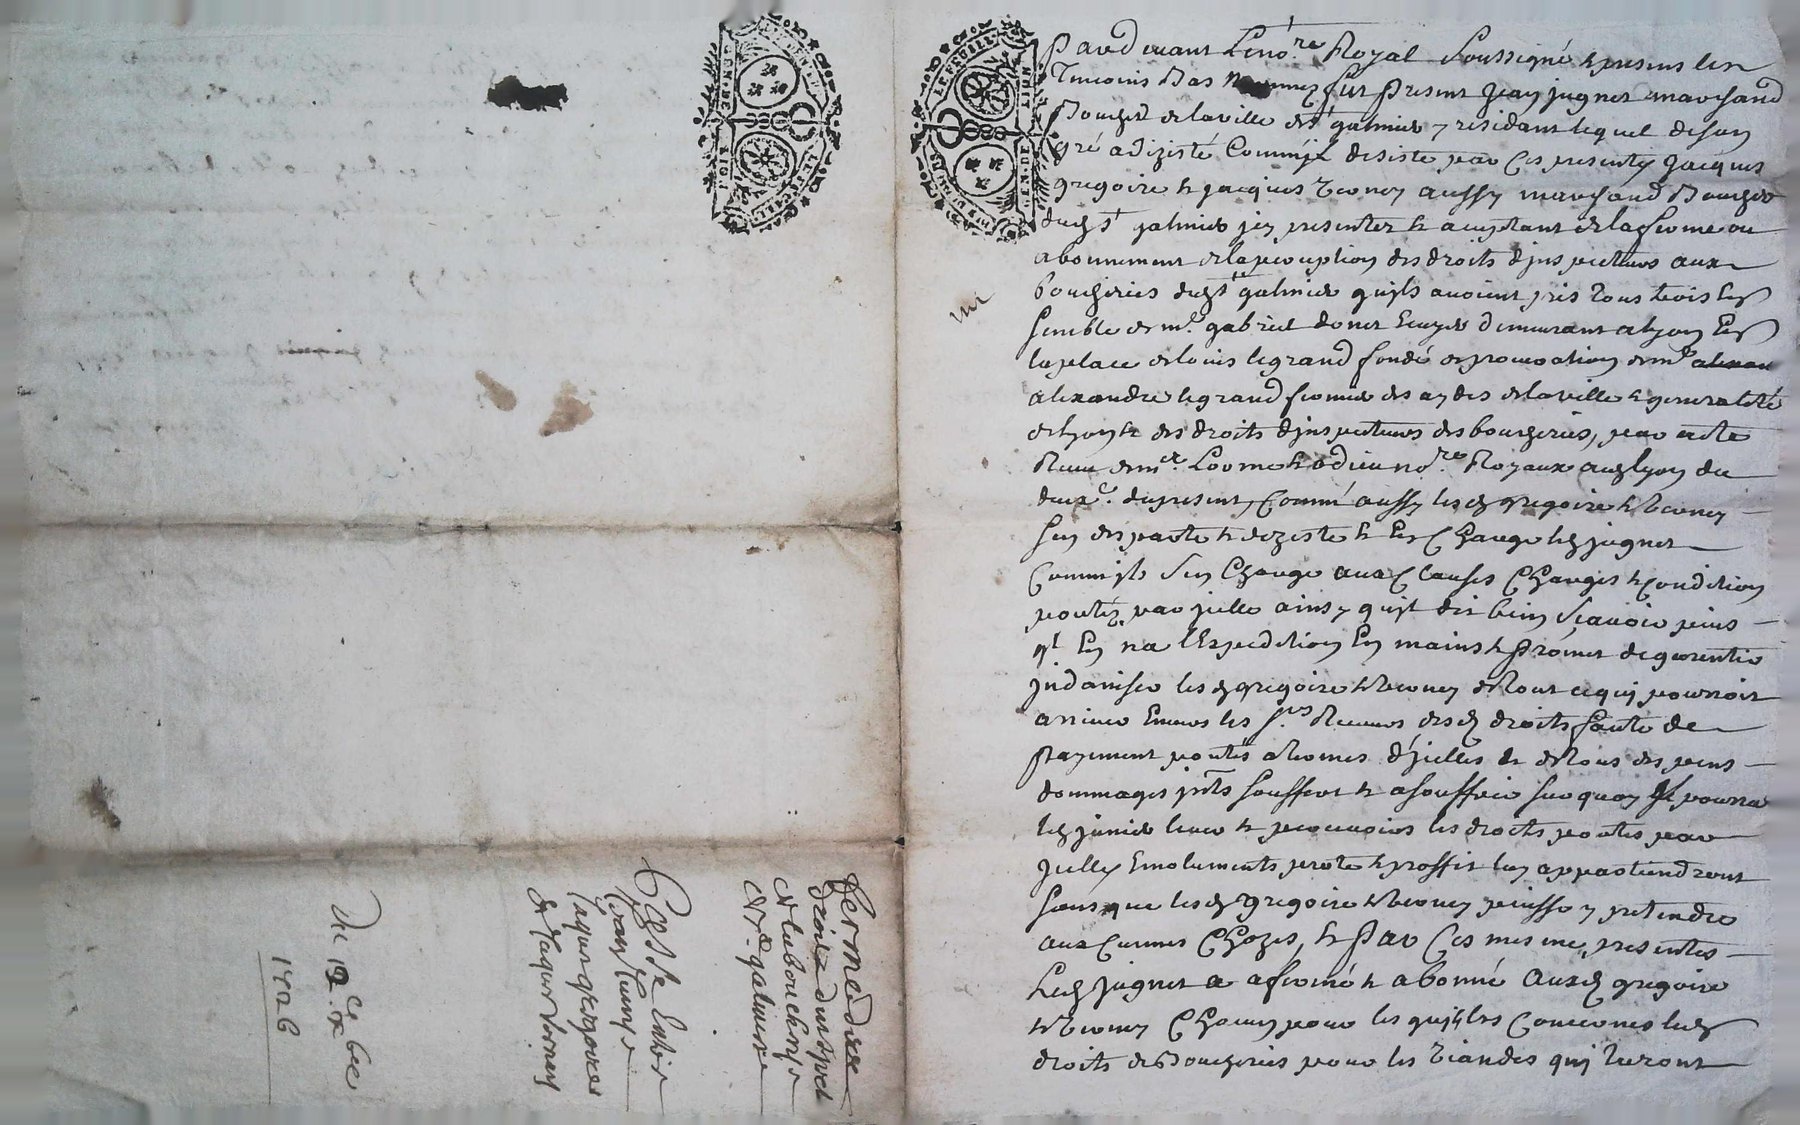 Pardevant Le no.re Royal Soussigné & presens les
Tmoins Bas nommez fut Present Jean jugnet marchand
Boucher de la ville de St galmier y residant lequel de son
gré a dizisté Comm'jl desiste par Ces presentes Jacques
gregoire & jacques verney aussy marchand Boucher
dud St galmier jcy presentes & aceptant de la ferme ou
abonnement de la perception des droits d'jnspecteurs aux
boucheries dud St galmier qu'jls avoient pris Tous trois En
semble de mr gabriel donet Ecuyer demeurant a lyon En
la place de louis le grand fondé de procuration de mre
alexandre le grand fermier des aydes de la ville & generalité
de lyon & des droits d'jnspecteurs des boucheries, par acte
Receu de mes no.res Royaux aud lyon du
deuxe. du present, Comme aussy lesd gregoire & verney
sen desparte & deziste & En Charge led jugnet
Comm'jls s'en Charge aux Clauses Charges & Condition
portés par jcelle ainsy qu'jl dit bien sçavoir puis
ql En na l'Expedition En mains & Promet de garentir
jndaniser lesd gregoire & verney de Tout ce quj pourroit
arriver Envers les srs Receveurs desd droits faute de
Payement portés a termes d'jcelles & de Tous des pens
dommages jnts souffert & a souffrir surquoy jl pourra
led lever & percevoir les droits portés par
jcelles Emoluments perte & proffit luy appartiendront
sans que lesd gregoire & verney puisse y pretendre
aucunnes Chozes, & Par Ces mesme presentes
Led Jugnet a afermé & abonné auxd gregoire
& verney Chacun pour les qu'jl les Concernes lesd
droits de Boucheries pour les viandes quj Tueront
ferme des
droits dinspect
de la boucherye
de St galmier
Entre
Jean Jugnet
Jaques gregoire
& Jaques Verney
Du 19 Xbre
1726
GEN. DE LION